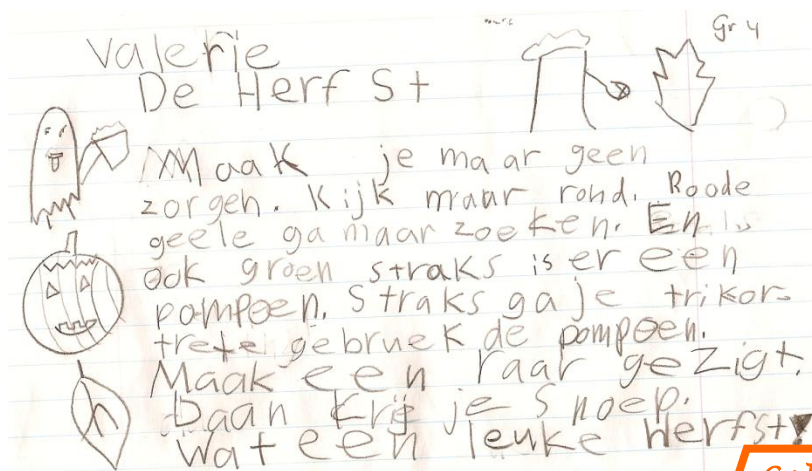 Gr 4
Valerie
De Herfst
Maak je maar geen
zorgen. Kijk maar rond. Roode
geele ga maar zoeken. En
ook groen straks is er een
pompoen. Straks ga je trikor-
trete gebruek de pompoen.
Maak een raar gezigt.
Daan krij je snoep.
Wat een leuke Herfst!